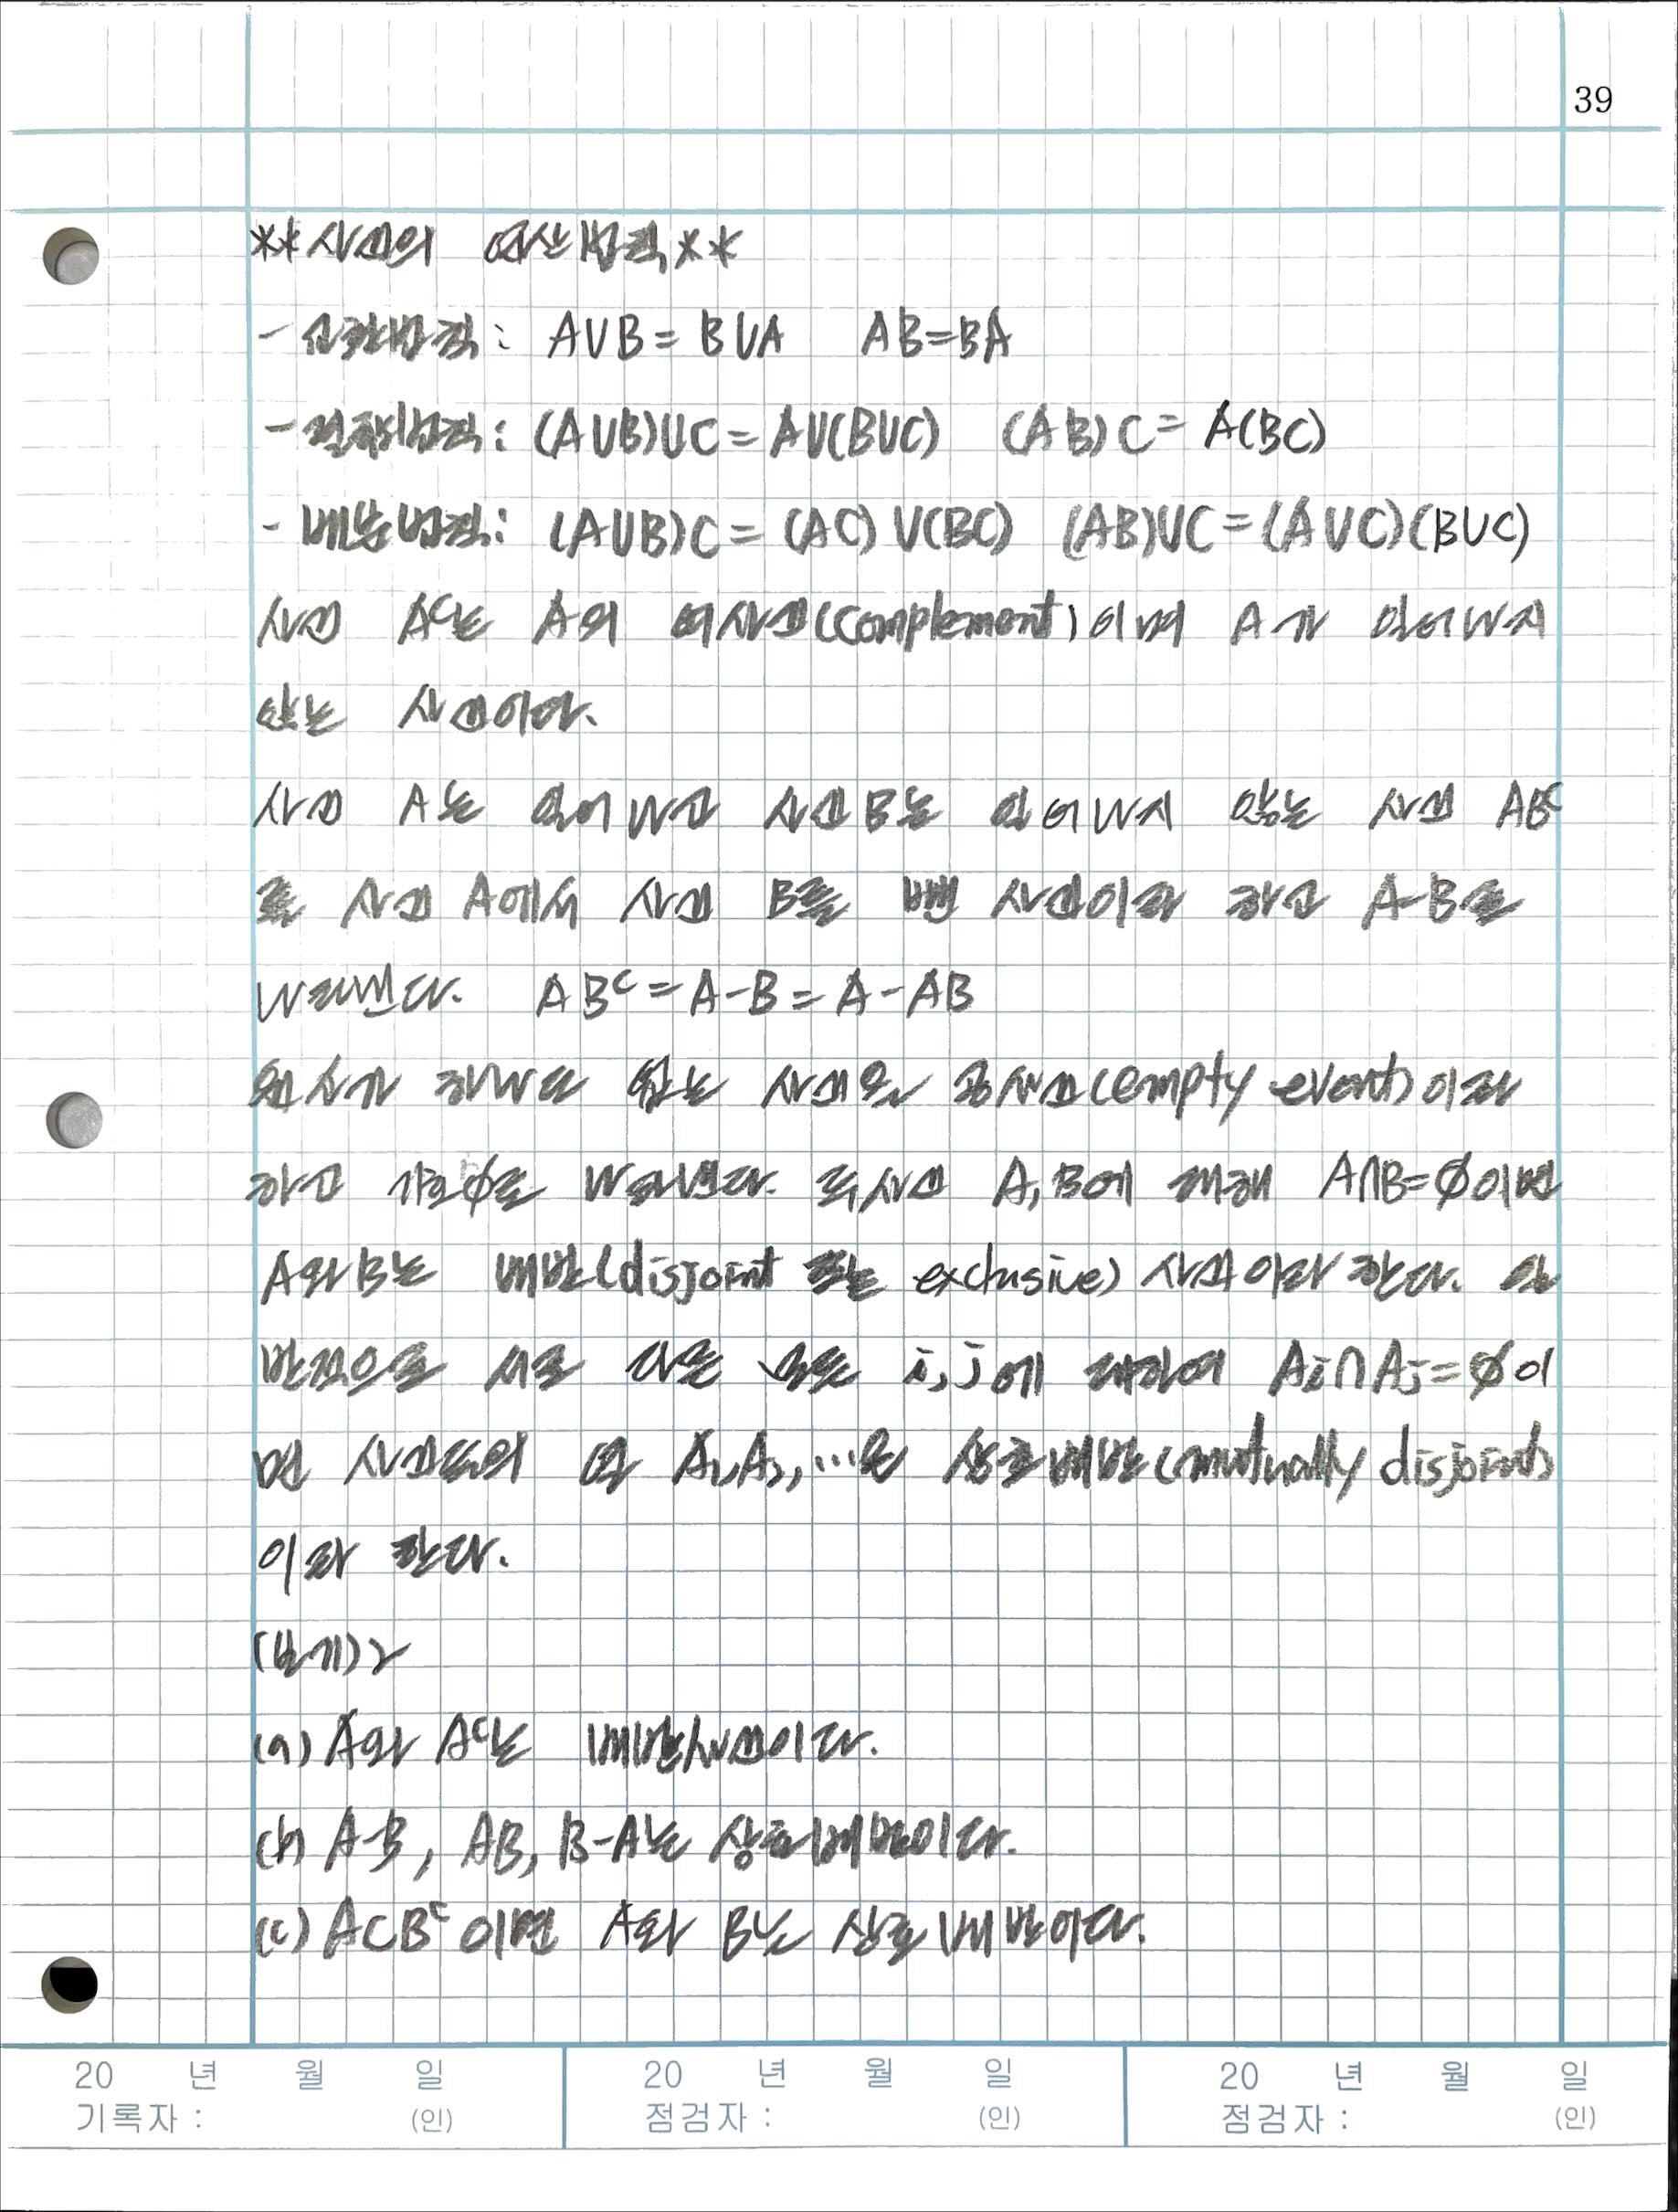 39
**사건의 연산법칙**
- 교환법칙: A∪B = B∪A AB=BA
- 결합법칙: (A∪B)∪C = A∪(B∪C) (AB)C = A(BC)
- 배분법칙: (A∪B)C = (AC)∪(BC) (AB)∪C = (A∪C)(B∪C)
사건 Aᶜ는 A의 여사건(complement)이며 A가 일어나지
않는 사건이다.
사건 A는 일어나고 사건 B는 일어나지 않는 사건 ABᶜ
를 사건 A에서 사건 B를 뺀 사건이라 하고 A-B로
나타낸다. ABᶜ = A-B = A-AB
원소가 하나도 없는 사건을 공사건(empty event)이라
하고 기호 ∅로 나타낸다. 두 사건 A, B에 대해 A∩B=∅이면
A와 B는 배반(disjoint 또는 exclusive) 사건이라 한다. 일
반적으로 서로 다른 모든 i, j에 대하여 Ai∩Aj=∅이
면 사건들의 열 A₁, A₂, …은 상호배반(mutually disjoint)
이라 한다.
(보기)2
(a) A와 Aᶜ는 배반사건이다.
(b) A-B, AB, B-A는 상호배반이다.
(c) A⊂Bᶜ이면 A와 B는 상호배반이다.
20 년 월 일 20 년 월 일 20 년 월 일
기록자 : (인) 점검자 : (인) 점검자 : (인)